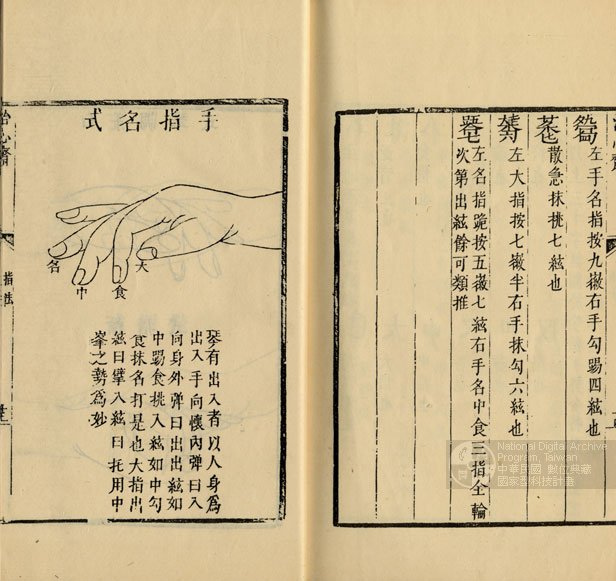 左手名指按九徽右手勾踢四絃也
散急抹挑七絃也
左大指按七徽半右手抹勾六絃也
左名指跪按五徽七絃右手名中食三指全輪
次第出絃餘可類推
手指名式
大
食
中
名
琴有出入者以人身為
出入手向懷內彈曰入
向身外彈曰出出絃如
中踢食挑入絃如中勾
食抹名打是也大指出
絃曰擘入絃曰托用中
峯之勢為妙
指法
National Digital Archive
Program, Taiwan
中華民國 數位典藏
國家型科技計畫